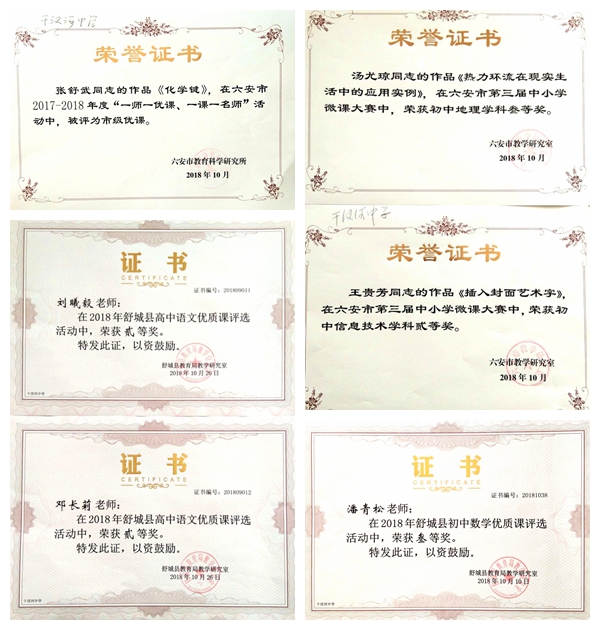 干汊河中学
荣誉证书
张舒武同志的作品《化学键》，在六安市
2017-2018年度“一师一优课、一课一名师”活
动中，被评为市级优课。
六安市教育科学研究所
2018年10月
荣誉证书
汤尤琼同志的作品《热力环流在现实生
活中的应用实例》，在六安市第三届中小学
微课大赛中，荣获初中地理学科叁等奖。
六安市教学研究室
2018年10月
证书
CERTIFICATE
证书编号：201809011
刘曦毅老师：
在2018年舒城县高中语文优质课评选
活动中，荣获贰等奖。
特发此证，以资鼓励。
舒城县教育局教学研究室
2018年10月26日
干汊河中学
干汊河中学
荣誉证书
王贵芳同志的作品《插入封面艺术字》，
在六安市第三届中小学微课大赛中，荣获初
中信息技术学科贰等奖。
六安市教学研究室
2018年10月
证书
CERTIFICATE
证书编号：201809012
邓长莉老师：
在2018年舒城县高中语文优质课评选
活动中，荣获贰等奖。
特发此证，以资鼓励。
舒城县教育局教学研究室
2018年10月26日
干汊河中学
证书
CERTIFICATE
证书编号：20181038
潘青松老师：
在2018年舒城县初中数学优质课评选
活动中，荣获叁等奖。
特发此证，以资鼓励。
舒城县教育局教学研究室
2018年10月10日
干汊河中学